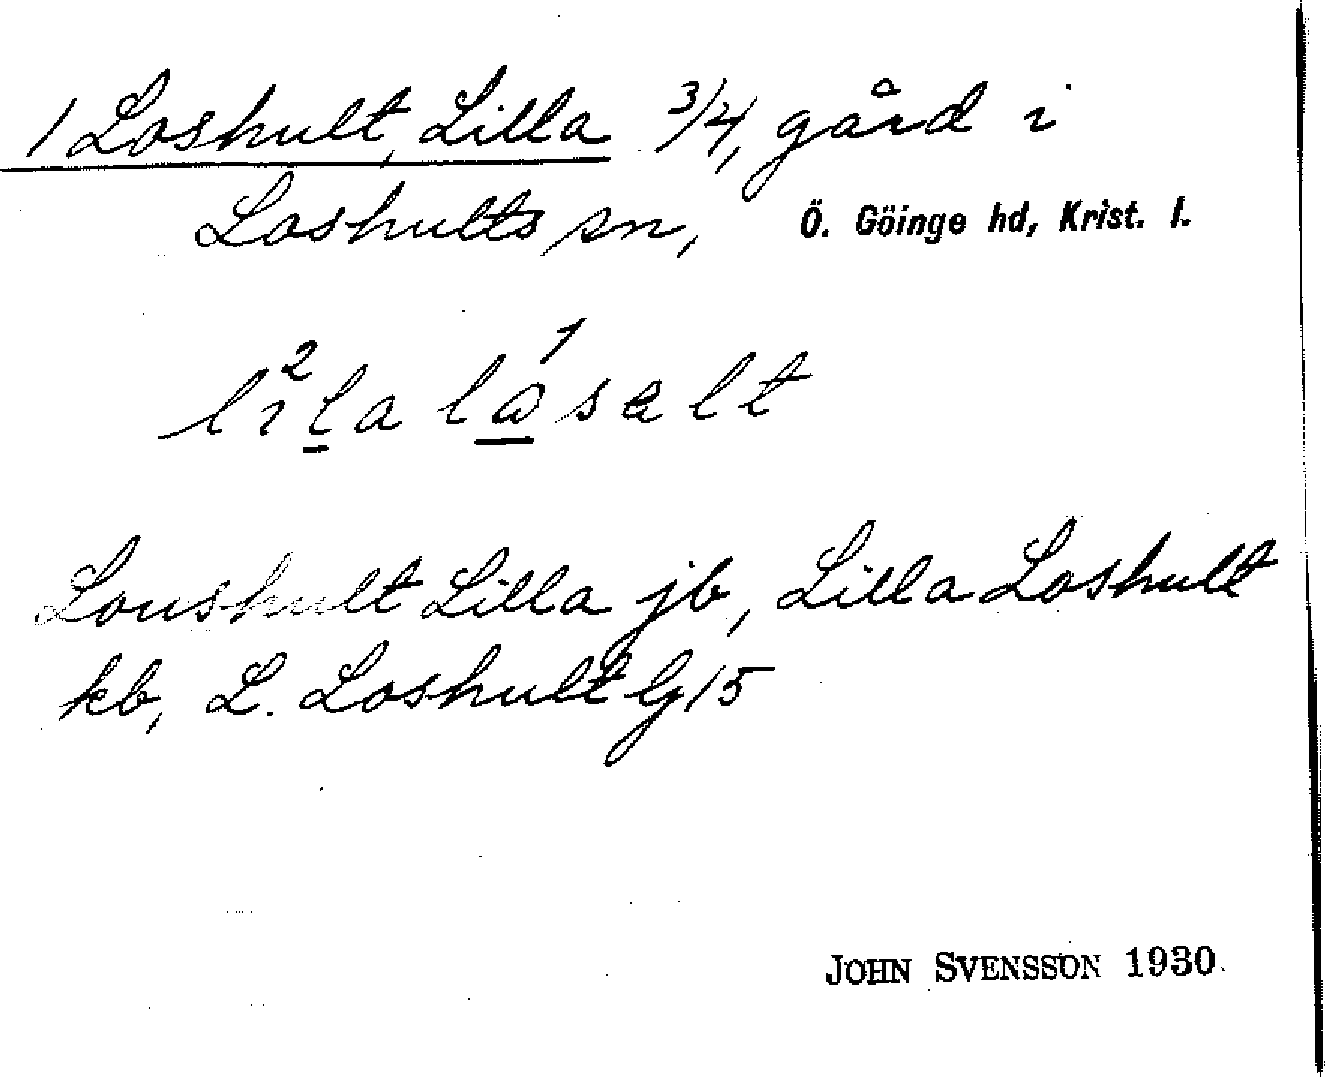 1 Loshult, Lilla 3/4, gård i
Loshults sn, Ö. Göinge hd, Krist. l.
li²la lɷ¹sɐlt
Loushult Lilla jb, Lilla Loshult
kb, L. Loshult G15
JOHN SVENSSON 1930.